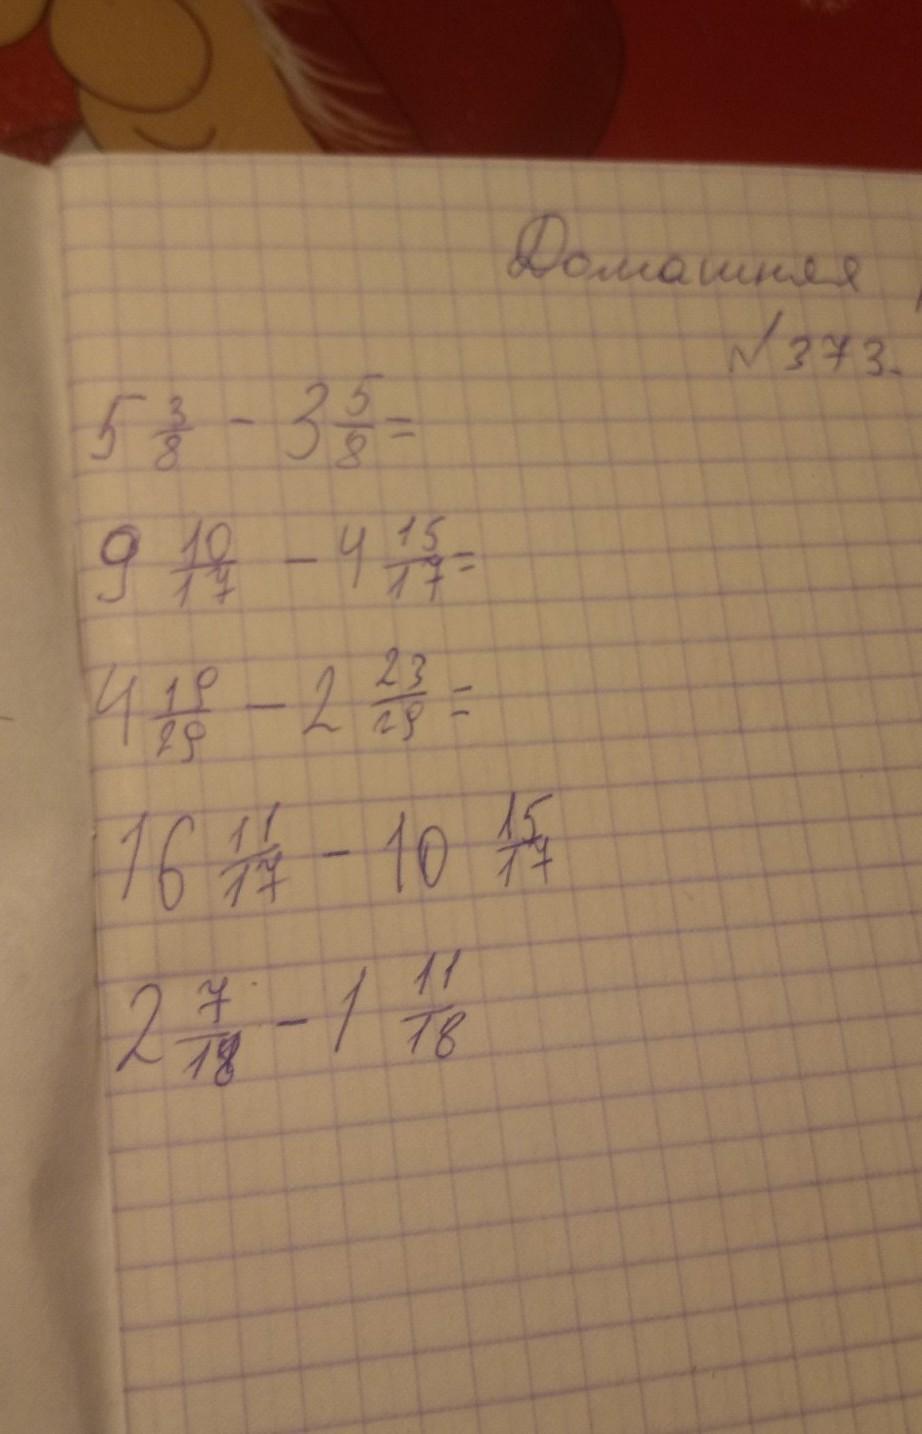 Домашняя
№373.
5 3/8 - 3 5/8 =
9 10/17 - 4 15/17 =
4 19/29 - 2 23/29 =
16 11/17 - 10 15/17
2 7/18 - 1 11/18